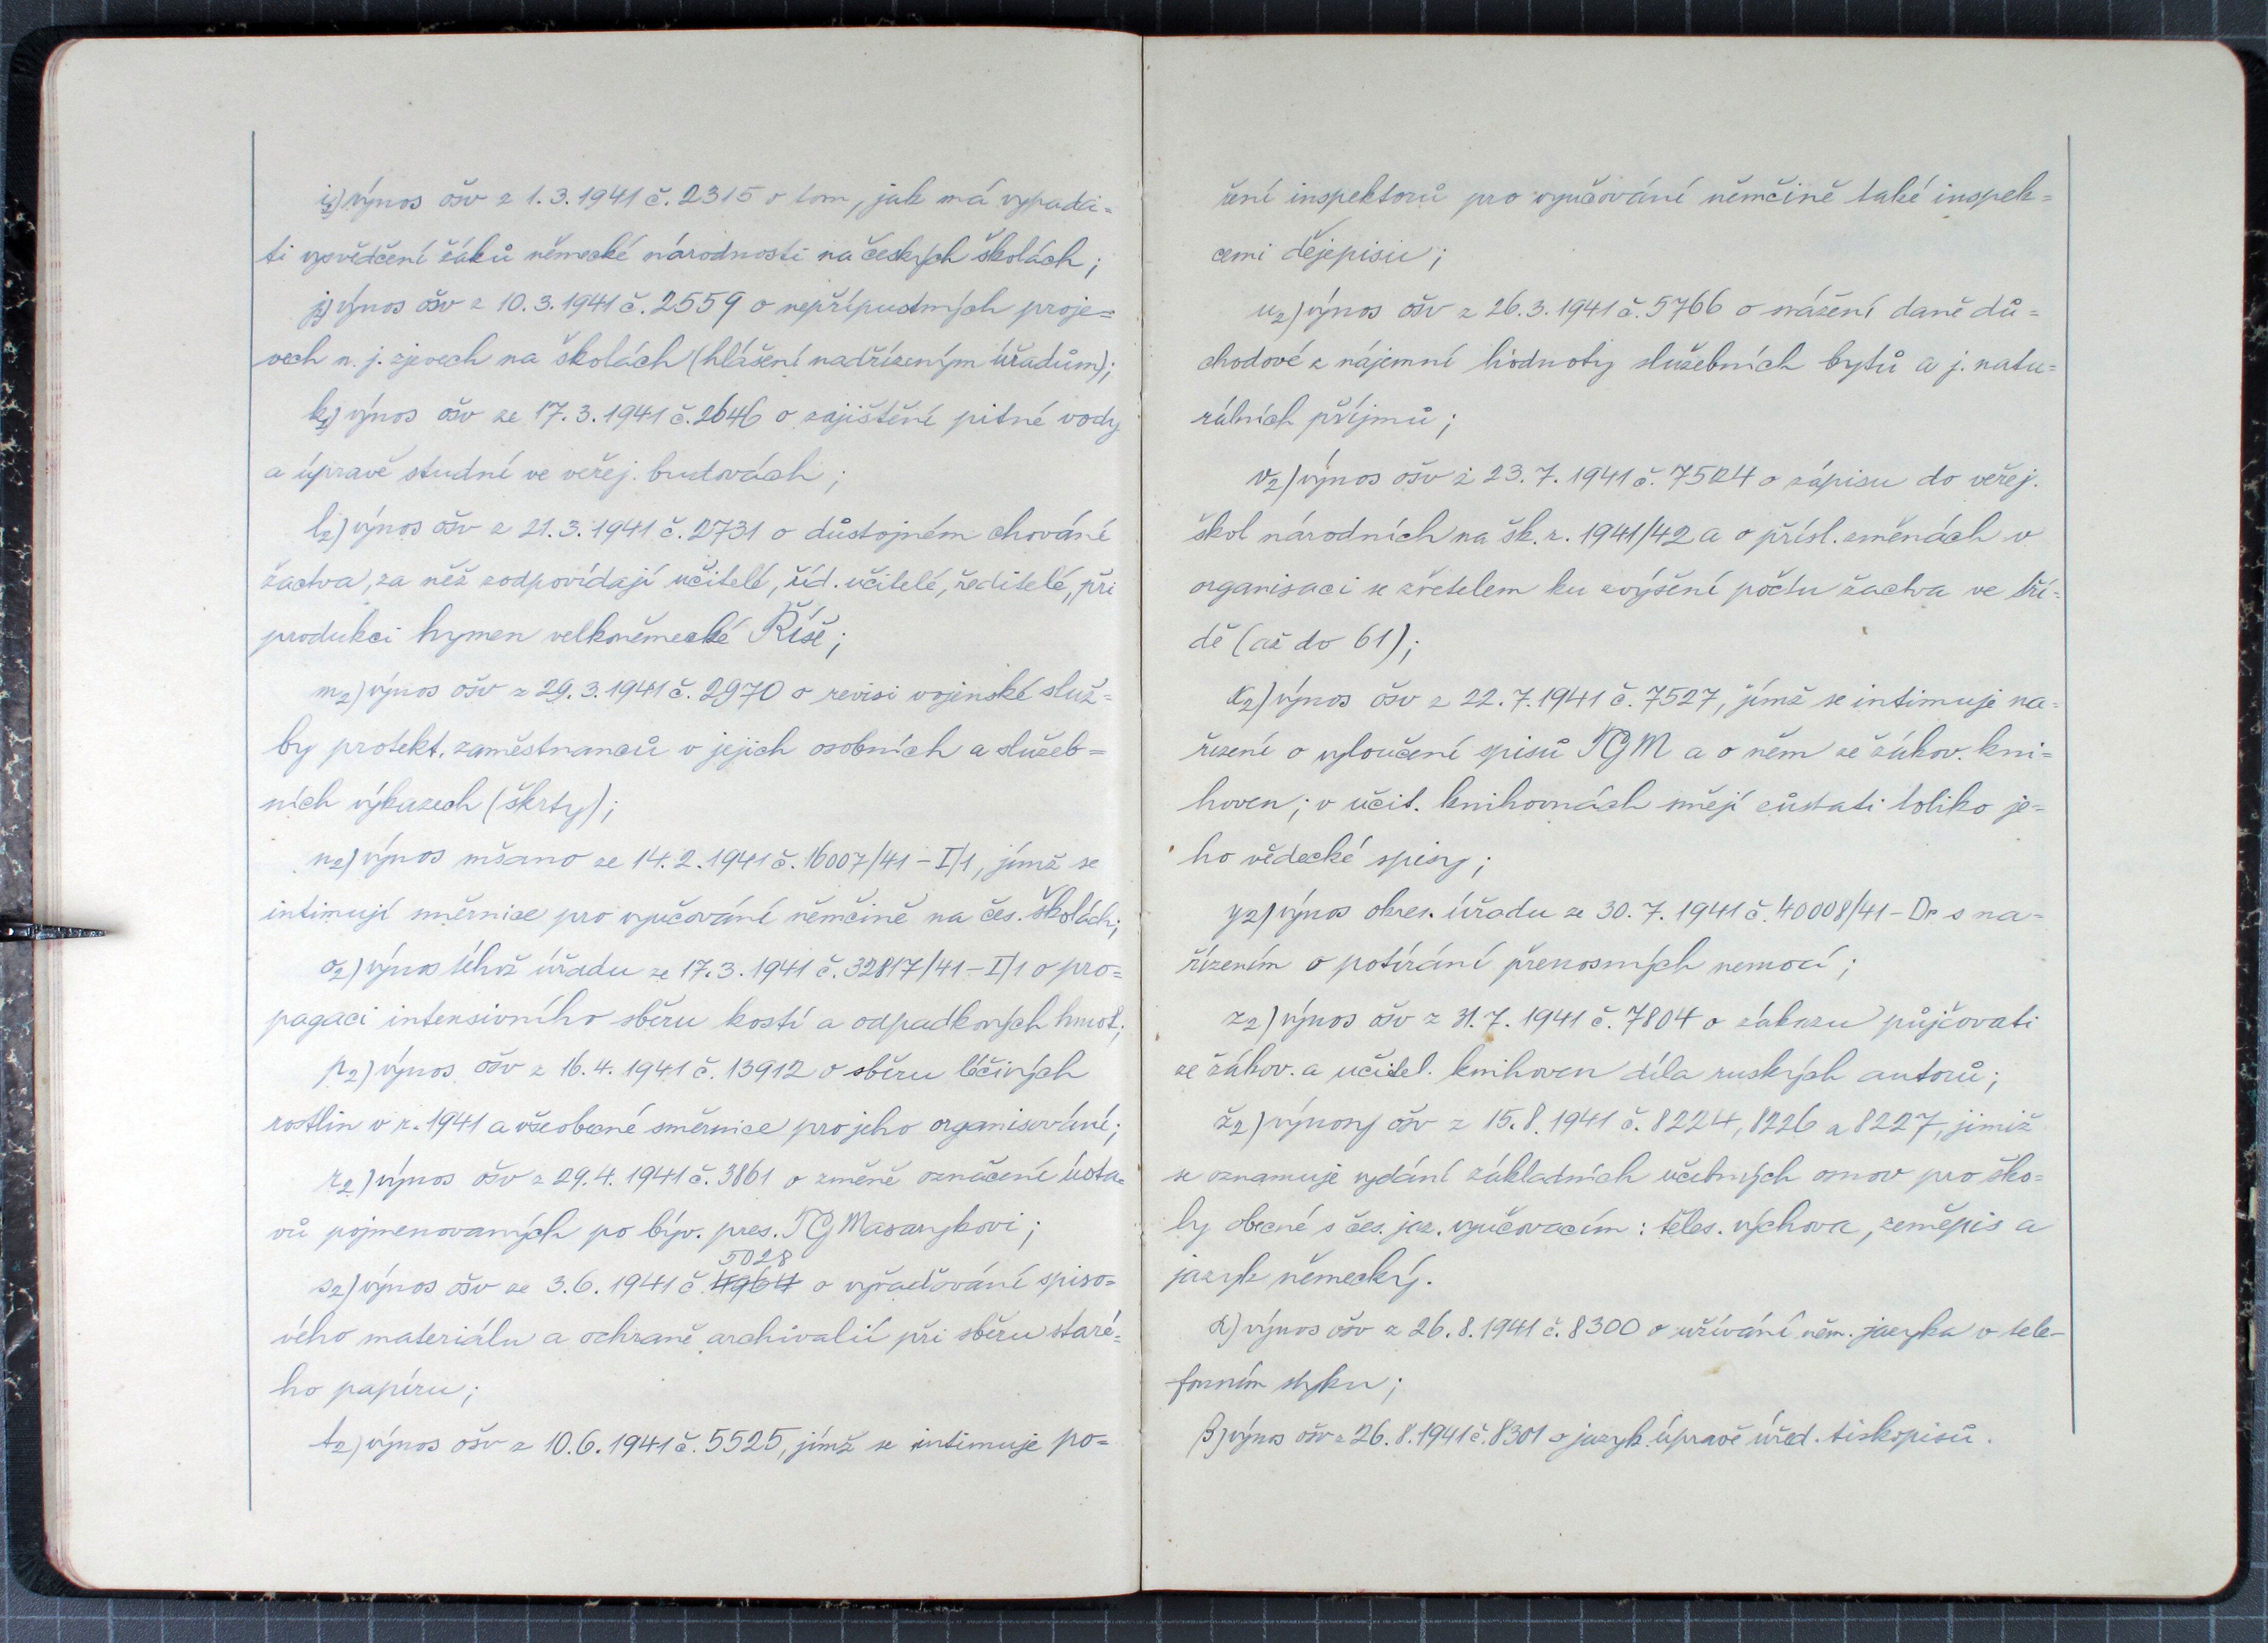 i2) výnos ošv z 1.3.1941 č. 2315 o tom, jak má vypada-
ti vysvědčení žáků německé národnosti na českých školách;
j2) výnos ošv z 10.3.1941 č. 2559 o nepřípustných proje-
vech n. j. zjevech na školách (hlášení nadřízeným úřadům);
k2) výnos ošv ze 17.3.1941 č. 2646 o zajištění pitné vody
a úpravě studní ve veřej. budovách;
l2) výnos ošv z 21.3.1941 č. 2731 o důstojném chování
žactva, za něž zodpovídají učitelé, říd. učitelé, ředitelé, při
produkci hymen velkoněmecké Říše;
m2) výnos ošv z 29.3.1941 č. 2970 o revisi vojenské služ-
by protekt. zaměstnanců v jejich osobních a služeb-
ních výkazech (škrty);
n2) výnos mšano ze 14.2.1941 č. 16007/41-I/1, jímž se
intimují směrnice pro vyučování němčině na čes. školách;
o2) výnos téhož úřadu ze 17.3.1941 č. 32817/41-I/1 o pro-
pagaci intensivního sběru kostí a odpadkových hmot;
p2) výnos ošv z 16.4.1941 č. 13912 o sběru léčivých
rostlin v r. 1941 a všeobecné směrnice pro jeho organisování;
r2) výnos ošv z 29.4.1941 č. 3861 o změně označení ústa-
vů pojmenovaných po býv. pres. TG Masarykovi;
5028
s2) výnos ošv ze 3.6.1941 č. 4964 o vyřaďování spiso-
vého materiálu a ochraně archivalií při sběru staré-
ho papíru;
t2) výnos ošv z 10.6.1941 č. 5525, jímž se intimuje po-
ření inspektorů pro vyučování němčině také inspek-
cemi dějepisu;
u2) výnos ošv z 26.3.1941 č. 5766 o srážení daně dů-
chodové z nájemní hodnoty služebních bytů a j. natu-
rálních příjmů;
v2) výnos ošv z 23.7.1941 č. 7524 o zápisu do veřej.
škol národních na šk. r. 1941/42 a o přísl. změnách v
organisaci se zřetelem ku zvýšení počtu žactva ve tří-
dě (až do 61);
x2) výnos ošv z 22.7.1941 č. 7527, jímž se intimuje na-
řízení o vyloučení spisů TGM a o něm ze žákov. kni-
hoven; v učit. knihovnách smějí zůstati toliko je-
ho vědecké spisy;
y2) výnos okres. úřadu ze 30.7.1941 č. 40008/41-Dr s na-
řízením o potírání přenosných nemocí;
z2) výnos ošv z 31.7.1941 č. 7804 o zákazu půjčovati
ze žákov. a učitel. knihoven díla ruských autorů;
ž2) výnosy ošv z 15.8.1941 č. 8224, 8226 a 8227, jimiž
se oznamuje vydání základních učebných osnov pro ško-
ly obecné s čes. jaz. vyučovacím: těles. výchova, zeměpis a
jazyk německý.
α) výnos ošv z 26.8.1941 č. 8300 o užívání něm. jazyka v tele-
fonním styku;
β) výnos ošv z 26.8.1941 č. 8301 o jazyk. úpravě úřed. tiskopisů.